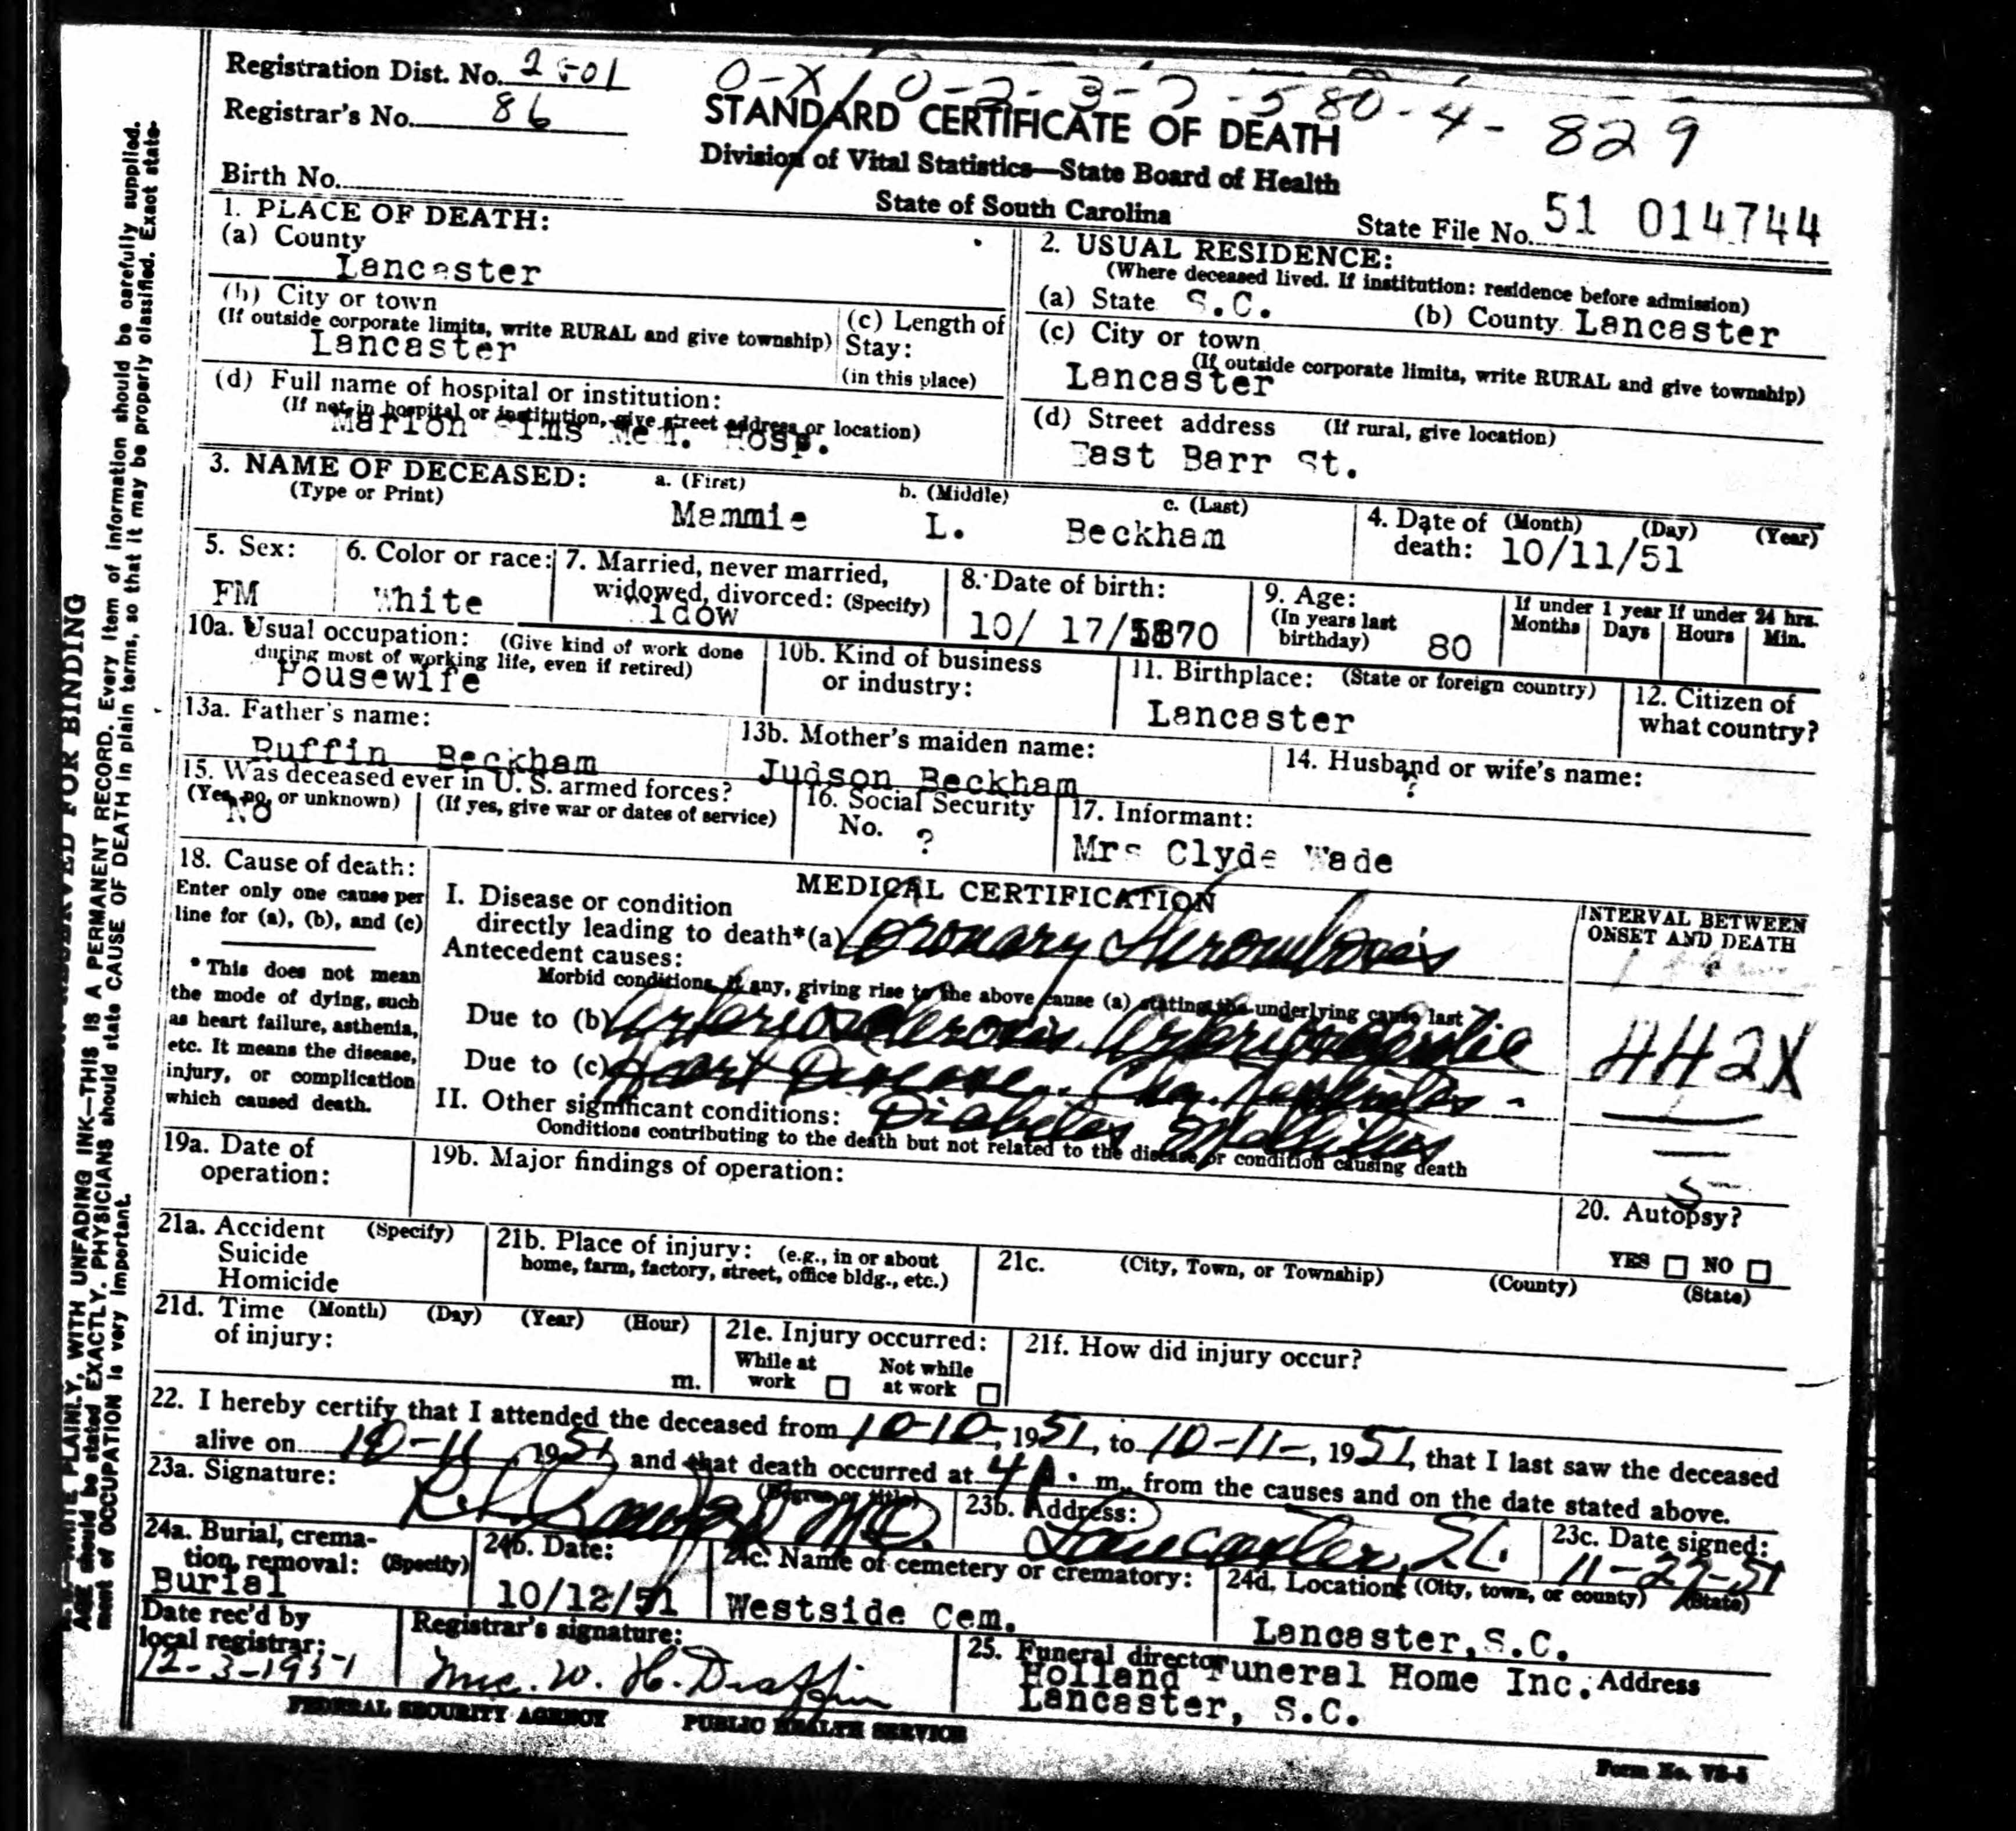 Registration Dist. No. 2501
0-X/0-2-3-7-580-4-829
Registrar's No. 86
STANDARD CERTIFICATE OF DEATH
Division of Vital Statistics—State Board of Health
Birth No.
State of South Carolina
State File No. 51 014744
1. PLACE OF DEATH:
(a) County
Lancaster
(b) City or town
(If outside corporate limits, write RURAL and give township)
Lancaster
(c) Length of
Stay:
(in this place)
(d) Full name of hospital or institution:
(If not in hospital or institution, give street address or location)
Marion Sims Mem. Hosp.
2. USUAL RESIDENCE:
(Where deceased lived. If institution: residence before admission)
(a) State S.C. (b) County Lancaster
(c) City or town
(If outside corporate limits, write RURAL and give township)
Lancaster
(d) Street address (If rural, give location)
East Barr St.
3. NAME OF DECEASED:
(Type or Print)
a. (First) b. (Middle) c. (Last)
Mammie L. Beckham
4. Date of (Month) (Day) (Year)
death: 10/11/51
5. Sex:
FM
6. Color or race:
White
7. Married, never married,
widowed, divorced: (Specify)
idow
8. Date of birth:
10/ 17/1870
9. Age:
(In years last
birthday) 80
If under 1 year If under 24 hrs.
Months Days Hours Min.
10a. Usual occupation: (Give kind of work done
during most of working life, even if retired)
Housewife
10b. Kind of business
or industry:
11. Birthplace: (State or foreign country)
Lancaster
12. Citizen of
what country?
13a. Father's name:
Ruffin Beckham
13b. Mother's maiden name:
Judson Beckham
14. Husband or wife's name:
?
15. Was deceased ever in U. S. armed forces?
(Yes, no, or unknown) (If yes, give war or dates of service)
No
16. Social Security
No. ?
17. Informant:
Mrs Clyde Wade
18. Cause of death:
Enter only one cause per
line for (a), (b), and (c)
* This does not mean
the mode of dying, such
as heart failure, asthenia,
etc. It means the disease,
injury, or complication
which caused death.
MEDICAL CERTIFICATION
I. Disease or condition
directly leading to death*(a) Coronary Thrombosis
Antecedent causes:
Morbid conditions, if any, giving rise to the above cause (a) stating the underlying cause last
Due to (b) Arteriosclerosis. Arteriosclerotic
Due to (c) Heart Disease. Chr. Nephritis.
II. Other significant conditions: Diabetes Mellitus
Conditions contributing to the death but not related to the disease or condition causing death
INTERVAL BETWEEN
ONSET AND DEATH
442X
19a. Date of
operation:
19b. Major findings of operation:
20. Autopsy?
YES NO
21a. Accident (Specify)
Suicide
Homicide
21b. Place of injury: (e.g., in or about
home, farm, factory, street, office bldg., etc.)
21c. (City, Town, or Township) (County) (State)
21d. Time (Month) (Day) (Year) (Hour)
of injury:
m.
21e. Injury occurred:
While at Not while
work at work
21f. How did injury occur?
22. I hereby certify that I attended the deceased from 10-10-, 1951, to 10-11-, 1951, that I last saw the deceased
alive on 10-11, 1951, and that death occurred at 4 A. m., from the causes and on the date stated above.
23a. Signature:
(Degree or title)
R L Crawford MD.
23b. Address:
Lancaster, S.C.
23c. Date signed:
11-27-51
24a. Burial, crema-
tion, removal: (Specify)
Burial
24b. Date:
10/12/51
24c. Name of cemetery or crematory:
Westside Cem.
24d. Location: (City, town, or county) (State)
Lancaster, S.C.
Date rec'd by
local registrar:
12-3-1951
Registrar's signature:
Mrs. W. H. Draffin
25. Funeral director Address
Holland Funeral Home Inc.
Lancaster, S.C.
FEDERAL SECURITY AGENCY PUBLIC HEALTH SERVICE
Form No. VS-5
RESERVED FOR BINDING
WRITE PLAINLY, WITH UNFADING INK—THIS IS A PERMANENT RECORD. Every item of information should be carefully supplied.
AGE should be stated EXACTLY. PHYSICIANS should state CAUSE OF DEATH in plain terms, so that it may be properly classified. Exact state-
ment of OCCUPATION is very important.